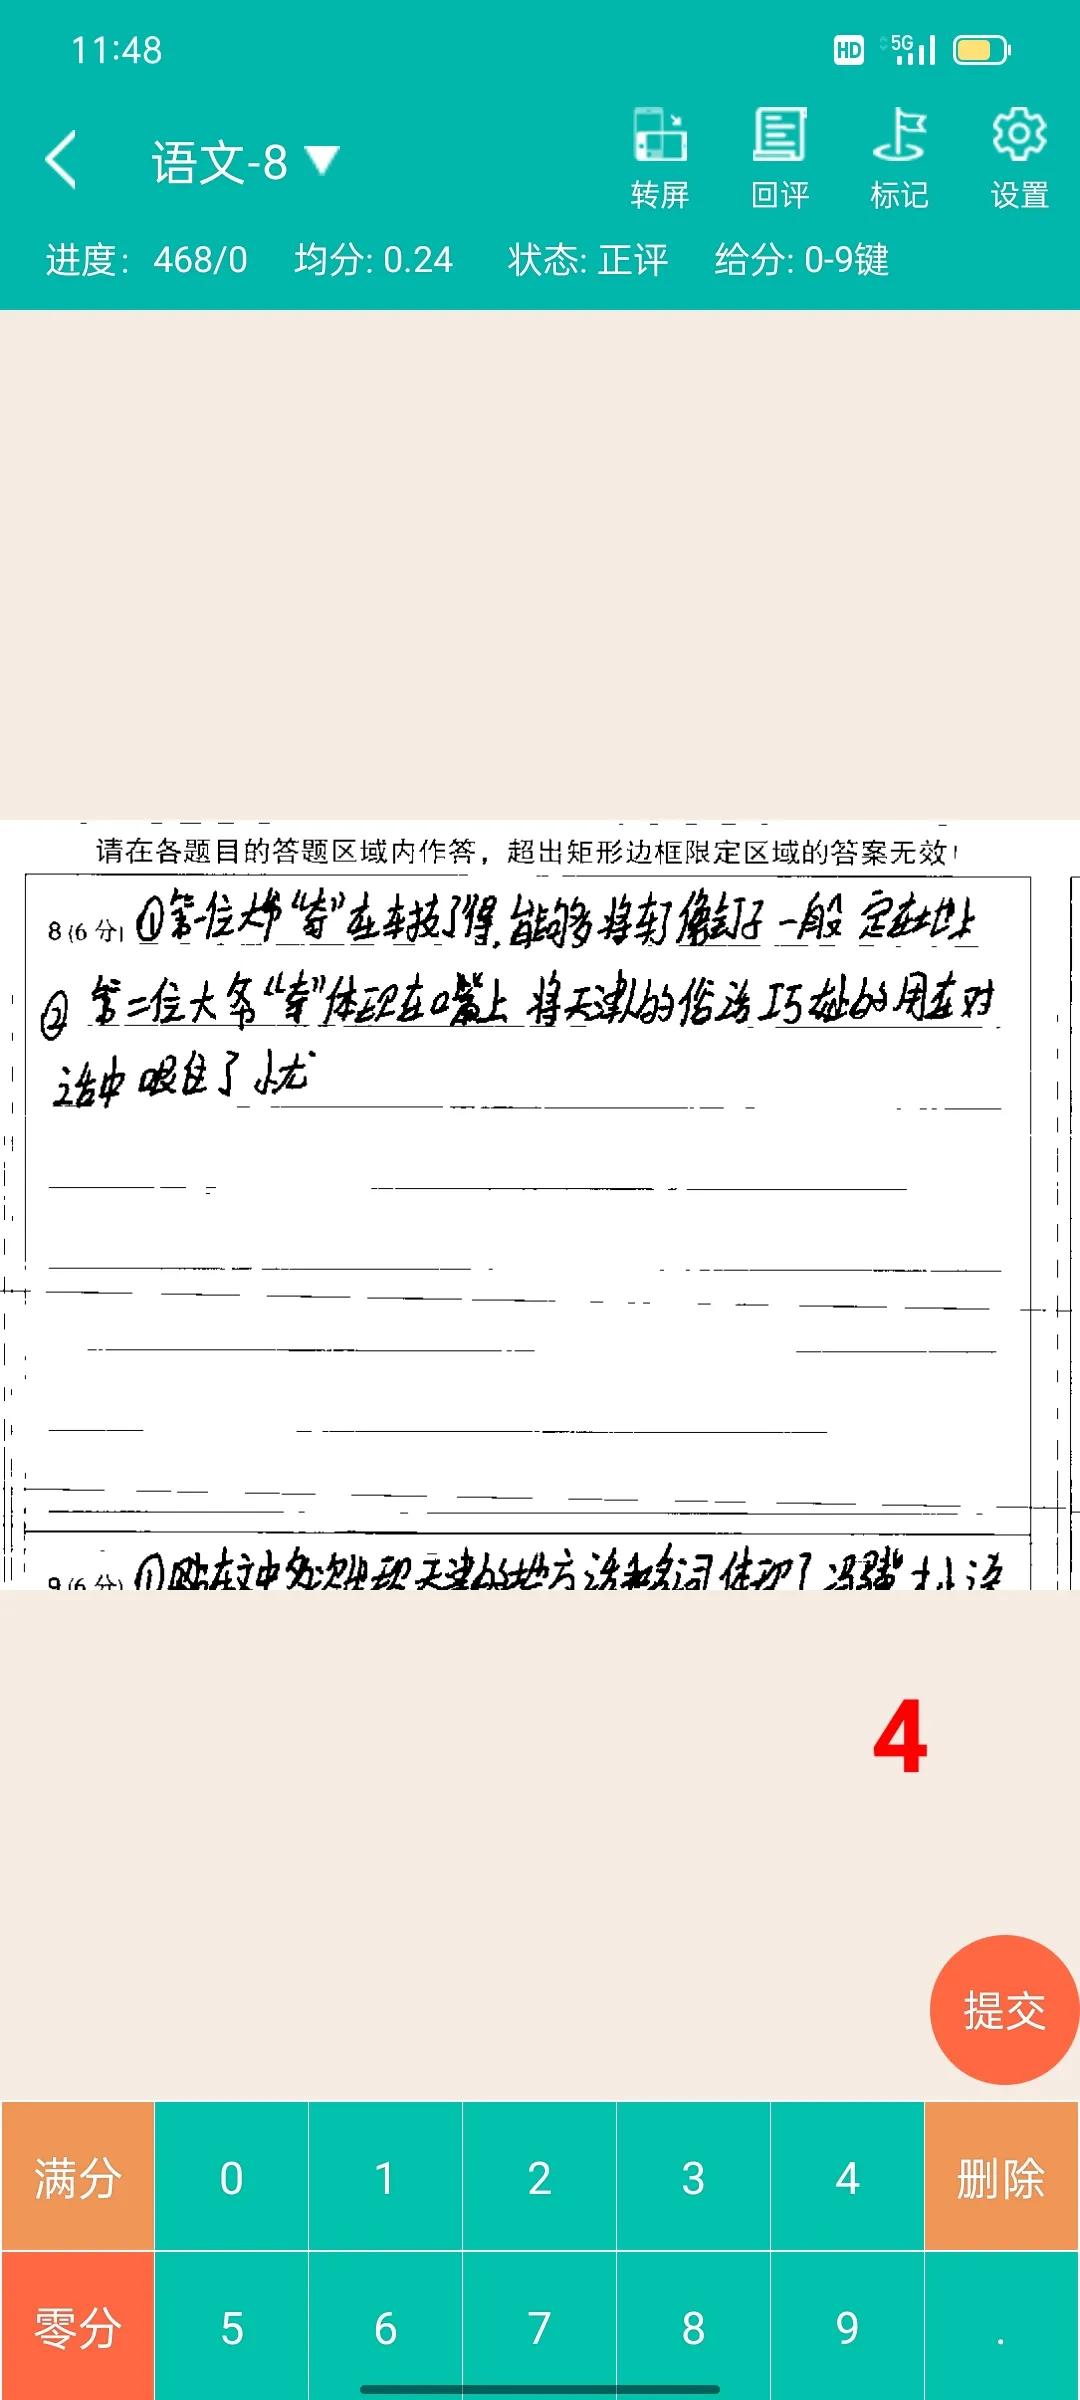 11:48
HD 5G
语文-8
转屏 回评 标记 设置
进度: 468/0 均分: 0.24 状态: 正评 给分: 0-9键
请在各题目的答题区域内作答，超出矩形边框限定区域的答案无效!
8(6分) ①第一位大爷“寺”在车技了得,能够将车子像钉子一般 定在地上
② 第二位大爷“寺”体现在口嘴上 将天津人的俗语巧妙的用在对
话中 吸住了
9(6分) ①在文中多次出现天津的地方话和名词 体现了
4
提交
满分 0 1 2 3 4 删除
零分 5 6 7 8 9 .